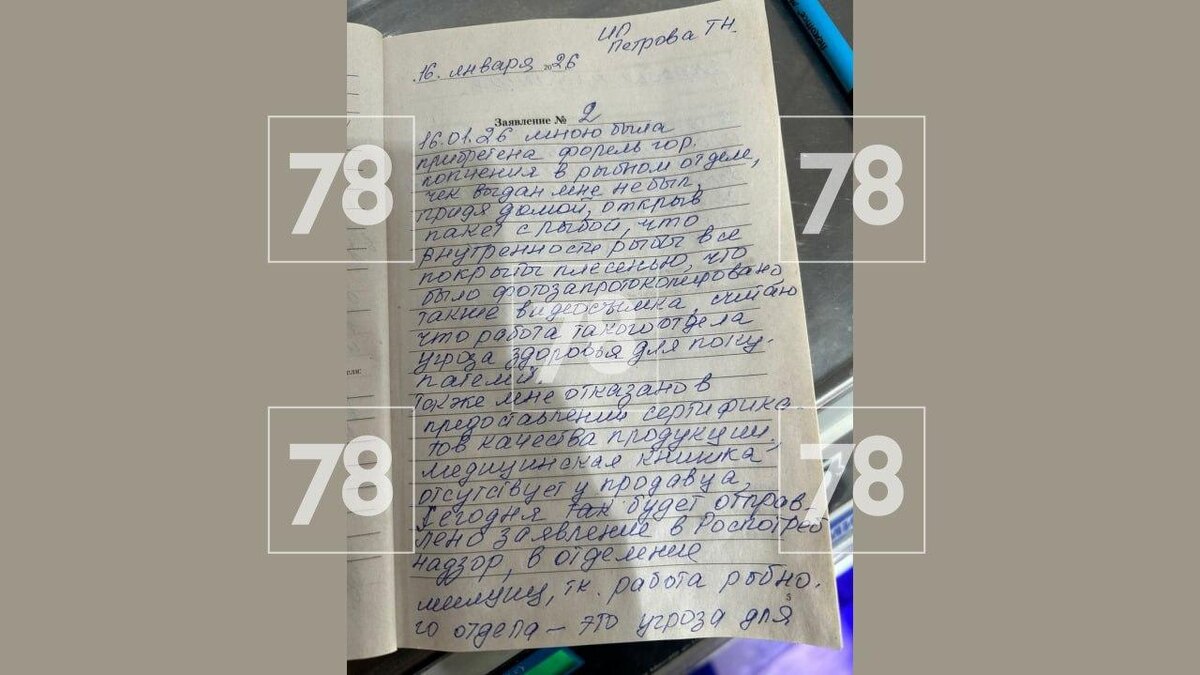 ИП
Петрова Т.Н.
16. января 2026
Заявление № 2
16.01.26 мною была
прибретена форель гор.
копчения в рыбном отделе,
чек выдан мне не был,
придя домой, открыв
пакет с рыбой, что
внутренности рыбы все
покрыты плесенью, что
было фотозапротоколировано
также видеосъмка, считаю
что работа такого отдела
угроза здоровья для поку-
пателей,
Также мне отказано в
предоставлении сертифика-
тов качества продукции,
медицинская книшка
отсутствует у продавца,
Сегодня так будет отправ-
лено заявление в Роспотреб
надзор, в отделение
милиции, тк. работа рыбно-
го отдела – это угроза для
5
ели:
78
78
78
78
78